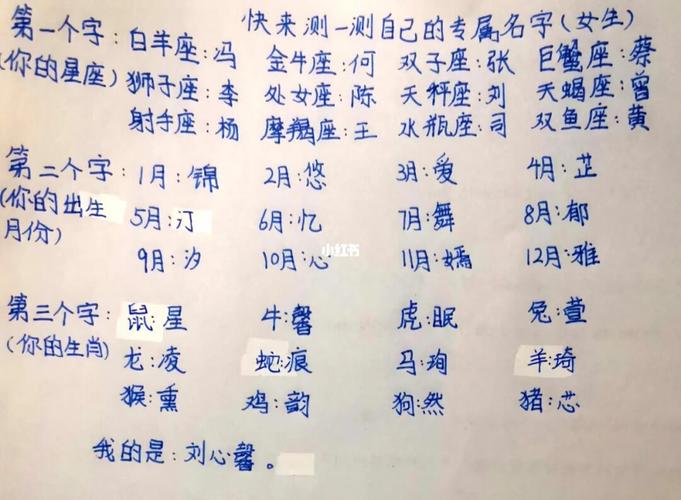 快来测一测自己的专属名字(女生)
第一个字:白羊座:冯 金牛座:何 双子座:张 巨蟹座:蔡
(你的星座) 狮子座:李 处女座:陈 天秤座:刘 天蝎座:曾
射手座:杨 摩羯座:王 水瓶座:司 双鱼座:黄
第二个字:1月:锦 2月:悠 3月:爱 4月:芷
(你的出生 5月:汀 6月:忆 7月:舞 8月:郁
月份) 9月:汐 10月:心 11月:嫣 12月:雅
小红书
第三个字:鼠:星 牛:馨 虎:眠 兔:萱
(你的生肖) 龙:凌 蛇:痕 马:珣 羊:琦
猴:熏 鸡:韵 狗:然 猪:芯
我的是:刘心馨。